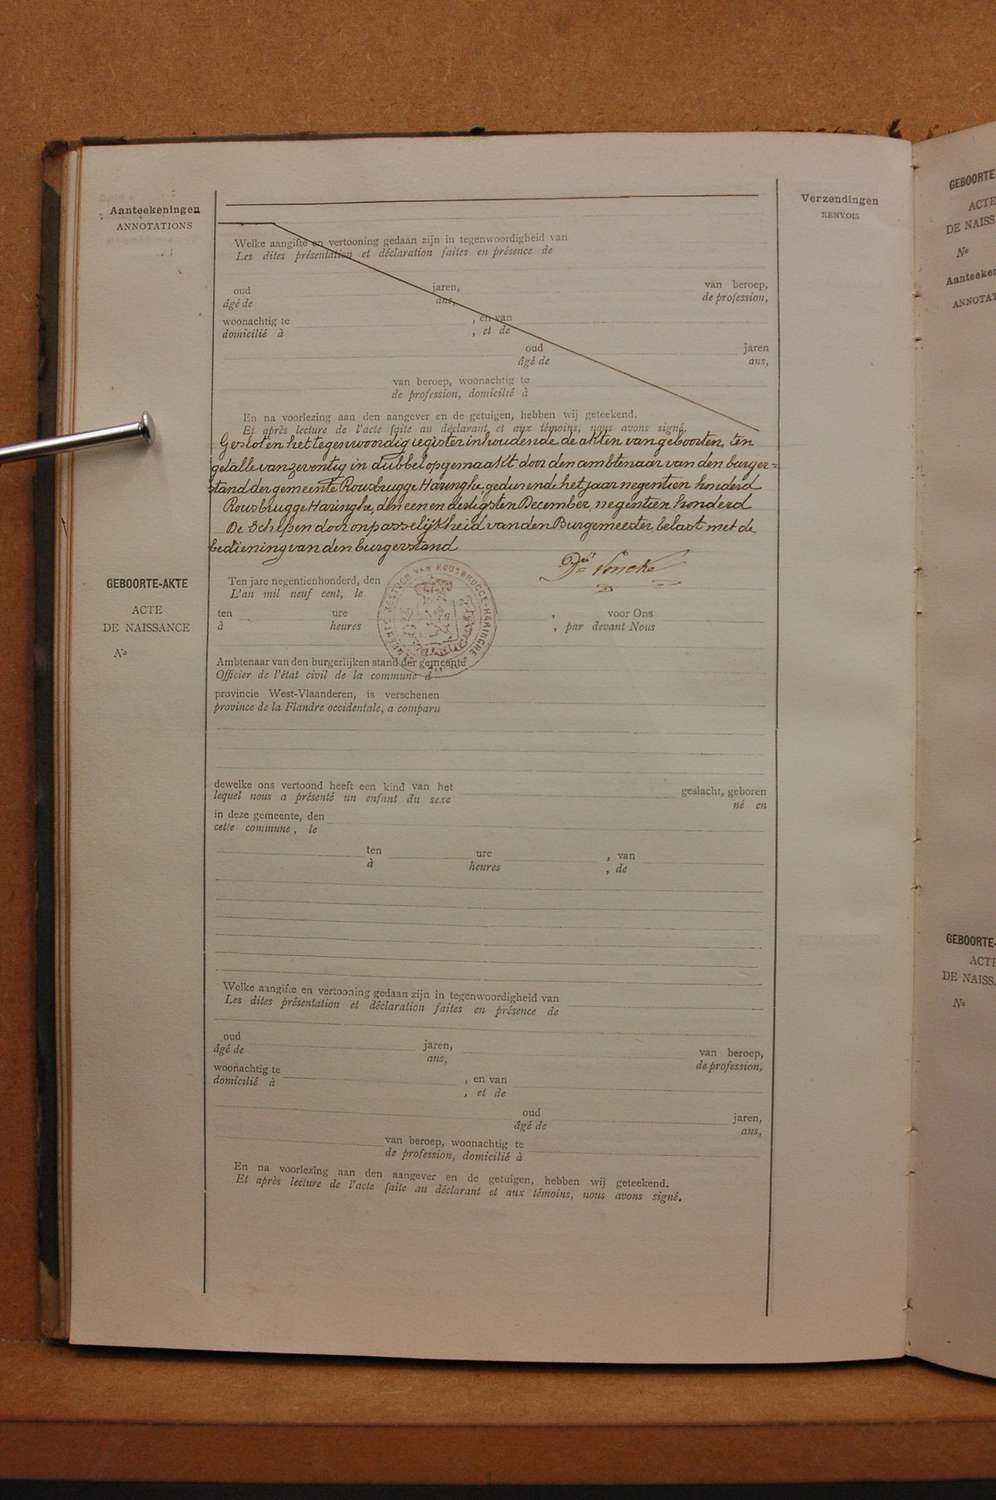 Aanteekeningen
ANNOTATIONS
Verzendingen
RENVOIS
Welke aangifte en vertooning gedaan zijn in tegenwoordigheid van
Les dites présentation et déclaration faites en présence de
oud jaren, van beroep,
âgé de ans, de profession,
woonachtig te , en van
domicilié à , et de
oud jaren
âgé de ans,
van beroep, woonachtig te
de profession, domicilié à
En na voorlezing aan den aangever en de getuigen, hebben wij geteekend.
Et après lecture de l'acte faite au déclarant et aux témoins, nous avons signé.
Gesloten het tegenwoordig register inhoudende de akten van geboorten, ten
getalle van zeventig in dubbel opgemaakt door den ambtenaar van den burger=
stand der gemeente Rousbrugge Haringhe, gedurende het jaar negentien honderd
Rousbrugge Haringhe, den een en dertigsten December, negentien honderd
De Schepen door onpasselijkheid van den Burgemeester, belast met de
bediening van den burgerstand
GEBOORTE-AKTE
ACTE
DE NAISSANCE
No
Ten jare negentienhonderd, den
L'an mil neuf cent, le
ten ure , voor Ons
à heures , par devant Nous
Ambtenaar van den burgerlijken stand der gemeente
Officier de l'état civil de la commune d
provincie West-Vlaanderen, is verschenen
province de la Flandre occidentale, a comparu
dewelke ons vertoond heeft een kind van het geslacht, geboren
lequel nous a présenté un enfant du sexe né en
in deze gemeente, den
cette commune, le
ten ure , van
à heures , de
Welke aangifte en vertooning gedaan zijn in tegenwoordigheid van
Les dites présentation et déclaration faites en présence de
oud jaren, van beroep,
âgé de ans, de profession,
woonachtig te , en van
domicilié à , et de
oud jaren,
âgé de ans,
van beroep, woonachtig te
de profession, domicilié à
En na voorlezing aan den aangever en de getuigen, hebben wij geteekend.
Et après lecture de l'acte faite au déclarant et aux témoins, nous avons signé.
GEBOORTE-
ACTE
DE NAISS
No
Aanteeke
ANNOTAT
GEBOORTE-
ACTE
DE NAISS
No